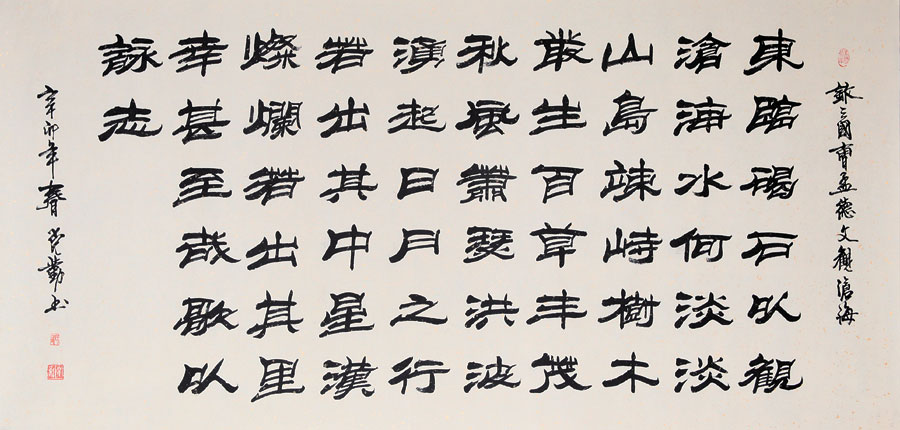 詠三國曹孟德文觀滄海
東臨碣石以觀
滄海水何淡淡
山島竦峙樹木
叢生百草丰茂
秋風蕭瑟洪波
湧起日月之行
若出其中星漢
燦爛若出其里
幸甚至哉歌以
詠志
辛卯年春書